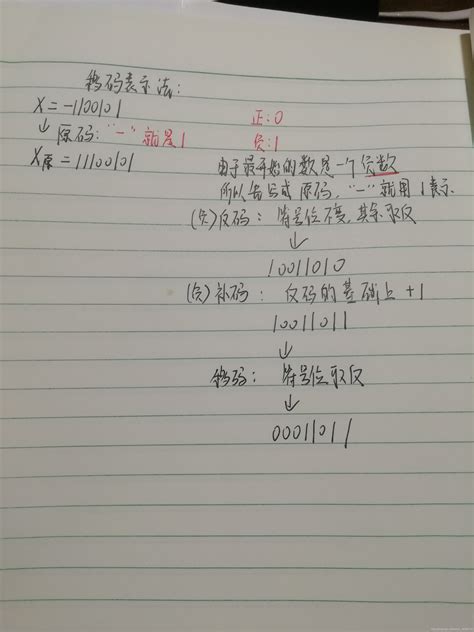 移码表示法:
X = -1100101
正:0
↓ 原码: "-" 就是1
负:1
X原 = 11100101
由于最开始的数是一个负数
所以若写成原码, "-"就用1表示.
(负)反码: 符号位不变,其余取反
↓
10011010
(负)补码: 反码的基础上 +1
10011011
↓
移码: 符号位取反
↓
00011011